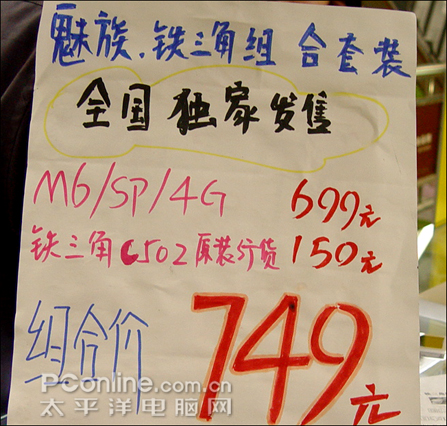 魅族.铁三角组 合套装
全国 独家发售
M6/SP/4G 699元
铁三角 C502原装行货 150元
组合价 749元
PConline.com.cn
太平洋电脑网